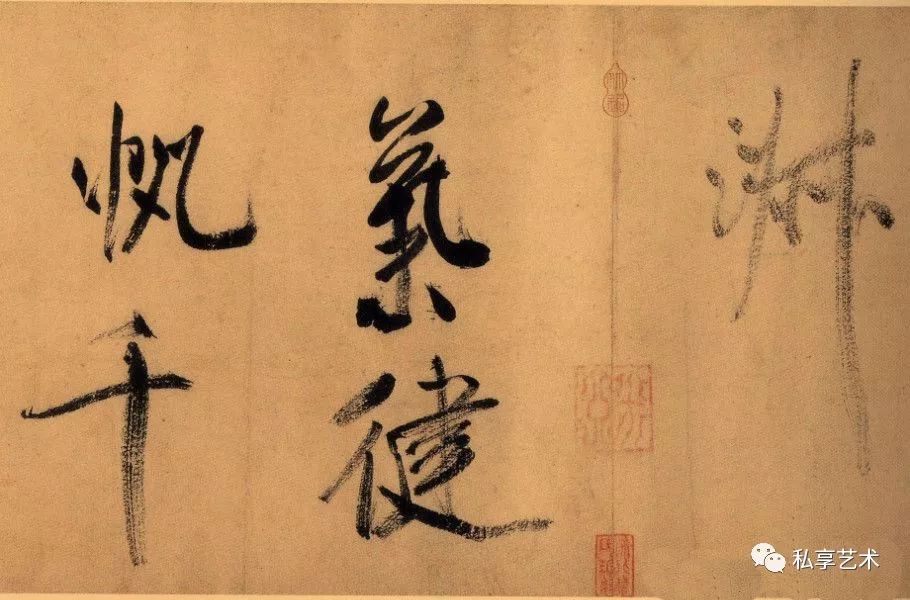 淑
氣健
帆千
私享艺术